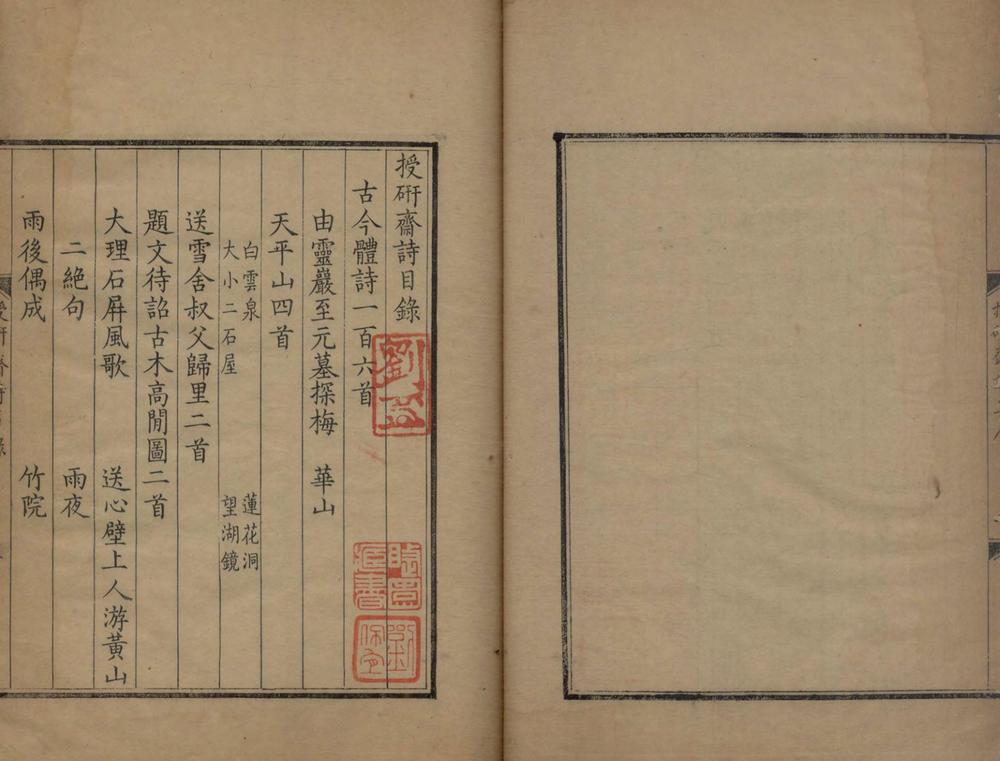 授硏齋詩目錄
古今體詩一百六首
由靈巖至元墓探梅　華山
天平山四首
白雲泉　蓮花洞
大小二石屋　望湖鏡
送雪舍叔父歸里二首
題文待詔古木高閒圖二首
大理石屛風歌　送心壁上人游黃山
二絶句　雨夜
雨後偶成　竹院